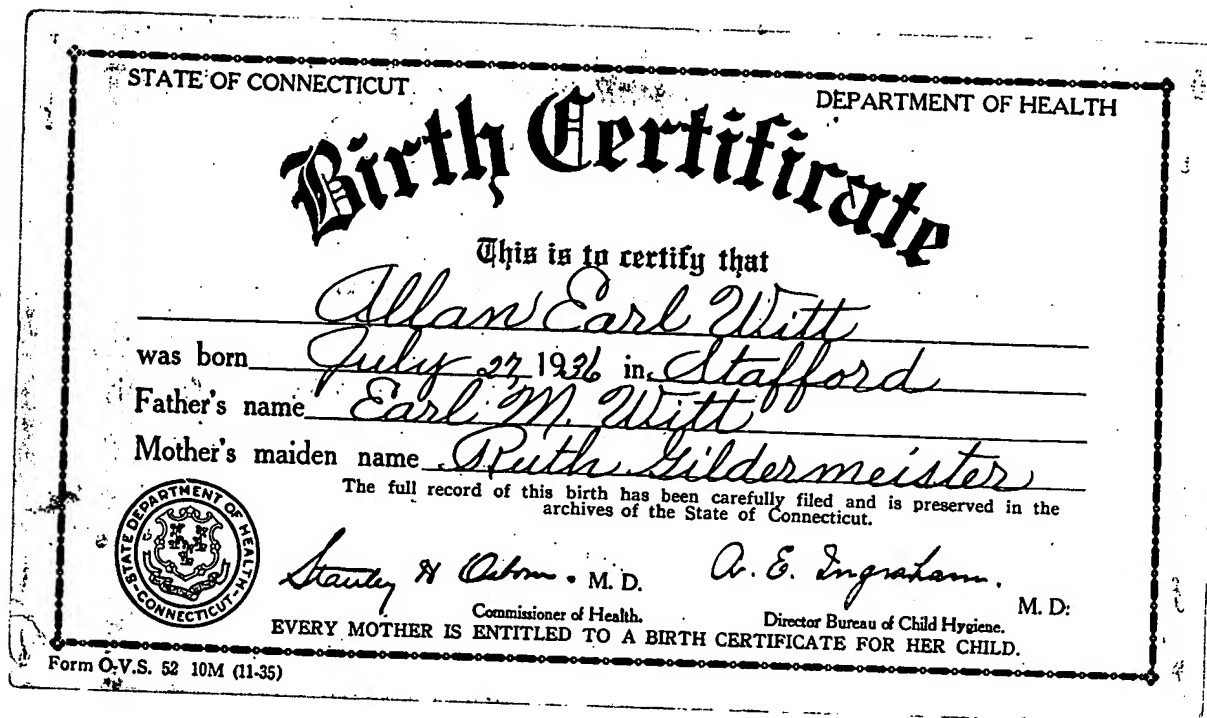 STATE OF CONNECTICUT
DEPARTMENT OF HEALTH
Birth Certificate
This is to certify that
Allan Earl Witt
was born July 27, 1936 in Stafford
Father's name Earl M. Witt
Mother's maiden name Ruth Gildermeister
The full record of this birth has been carefully filed and is preserved in the
archives of the State of Connecticut.
STATE DEPARTMENT OF HEALTH
CONNECTICUT
Stanley H Osborn. M. D.
A. E. Ingraham. M. D.
Commissioner of Health.
Director Bureau of Child Hygiene.
EVERY MOTHER IS ENTITLED TO A BIRTH CERTIFICATE FOR HER CHILD.
Form O.V.S. 52 10M (11-35)